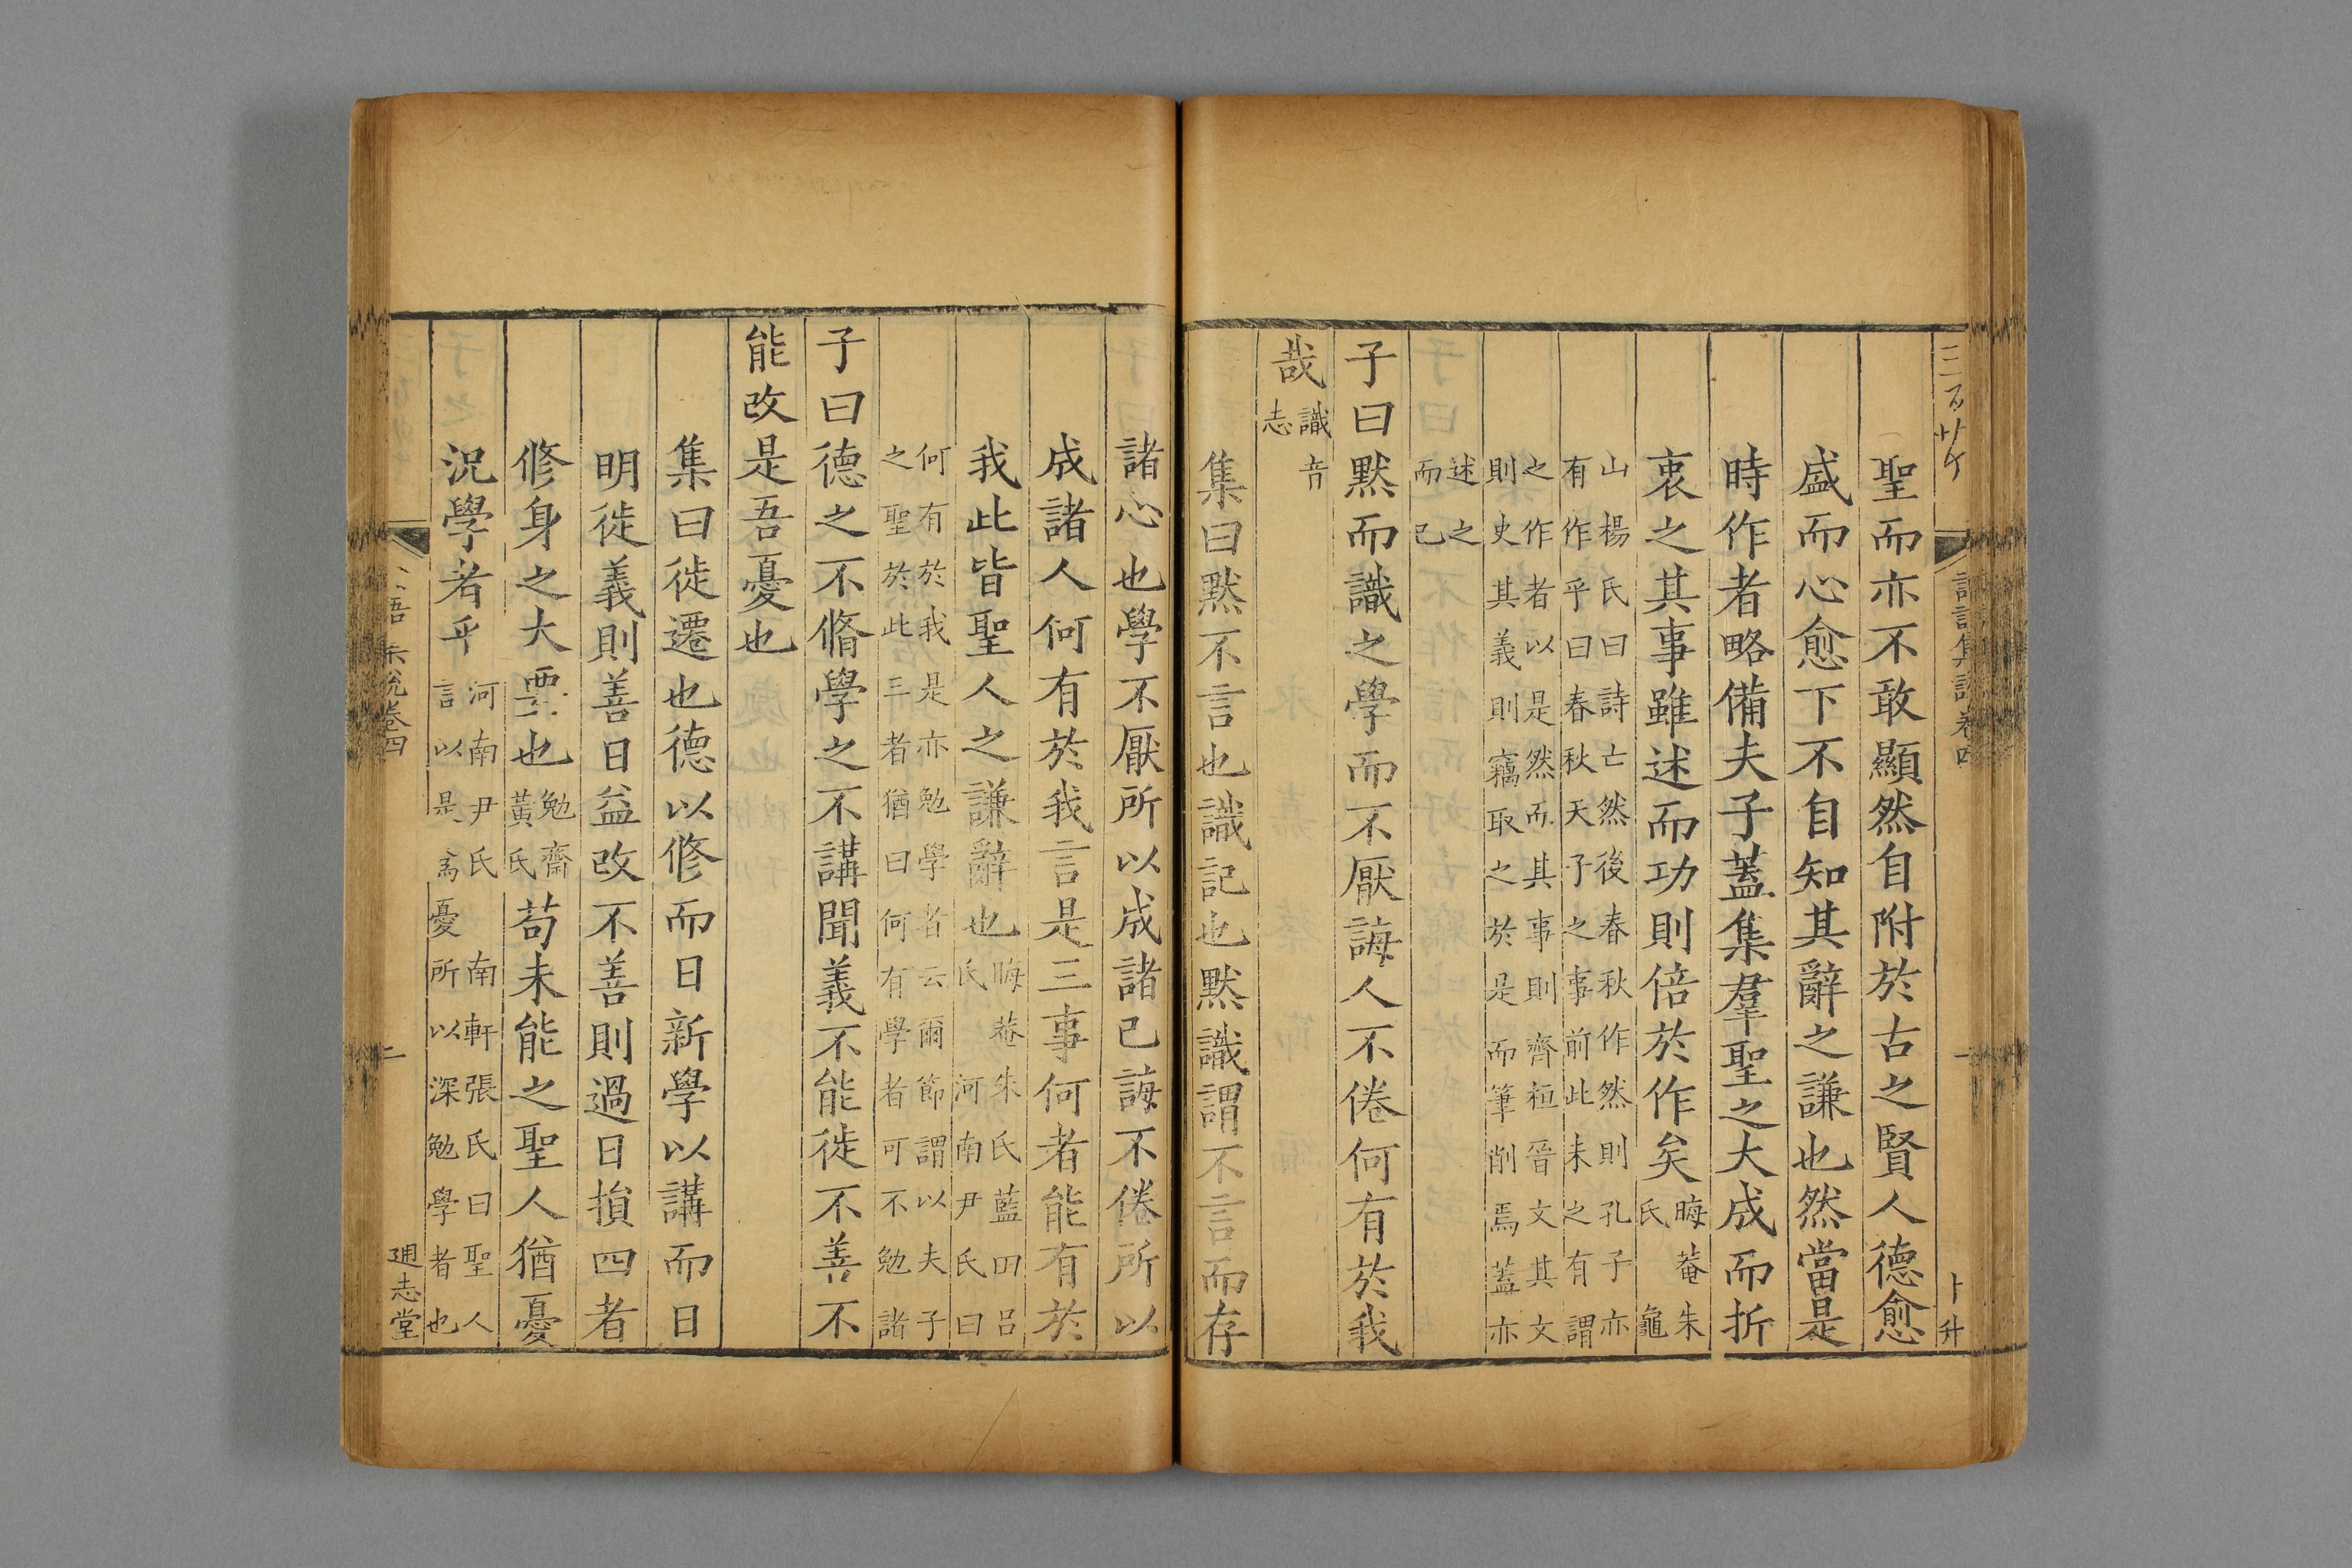 聖而亦不敢顯然自附於古之賢人德愈
盛而心愈下不自知其辭之謙也然當是
時作者略備夫子蓋集羣聖之大成而折
衷之其事雖述而功則倍於作矣晦菴朱氏龜
山楊氏曰詩亡然後春秋作然則孔子亦
有作乎曰春秋天子之事前此未之有謂
之作者以是然而其事則齊桓晉文其文
則史其義則竊取之於是而筆削焉蓋亦
述之
而已
子曰默而識之學而不厭誨人不倦何有於我
哉識音志
集曰默不言也識記也默識謂不言而存
諸心也學不厭所以成諸已誨不倦所以
成諸人何有於我言是三事何者能有於
我此皆聖人之謙辭也晦菴朱氏藍田呂氏河南尹氏曰
何有於我是亦勉學者云爾節謂以夫子
之聖於此三者猶曰何有學者可不勉諸
子曰德之不脩學之不講聞義不能徙不善不
能改是吾憂也
集曰徙遷也德以修而日新學以講而日
明徙義則善日益改不善則過日損四者
修身之大要也勉齋黃氏苟未能之聖人猶憂
況學者乎河南尹氏南軒張氏曰聖人
言以是為憂所以深勉學者也
卷四
二
通志堂